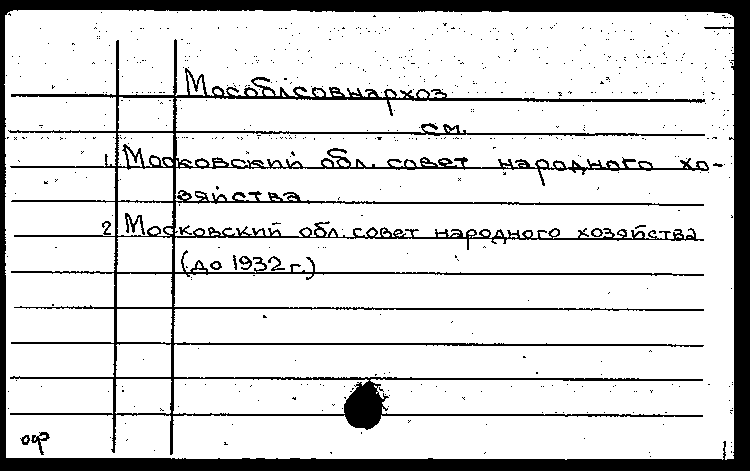 Мособлсовнархоз
см.
1. Московский обл. совет народного хо-
зяйства
2 Московский обл. совет народного хозяйства
(до 1932 г.)